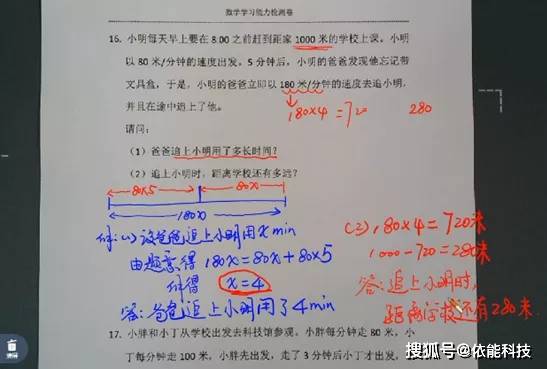 数学学习能力检测卷
16. 小明每天早上要在 8:00 之前赶到距家 1000 米的学校上课。小明
以 80 米/分钟的速度出发。5 分钟后，小明的爸爸发现他忘记带
文具盒，于是，小明的爸爸立即以 180 米/分钟的速度去追小明，
并且在途中追上了他。
180×4=720 280
请问：
（1）爸爸追上小明用了多长时间？
（2）追上小明时，距离学校还有多远？
80×5 80x
180x
解:(1)设爸爸追上小明用x min
由题意得 180x=80x+80×5
解得 x=4
答:爸爸追上小明用了4min
(2)180×4=720米
1000-720=280米
答:追上小明时,
距离学校还有280米.
17. 小胖和小丁从学校出发去科技馆参观，小胖每分钟走 80 米，小
丁每分钟走 100 米。小胖先出发，走了 3 分钟后小丁才出发，
搜狐号@依能科技